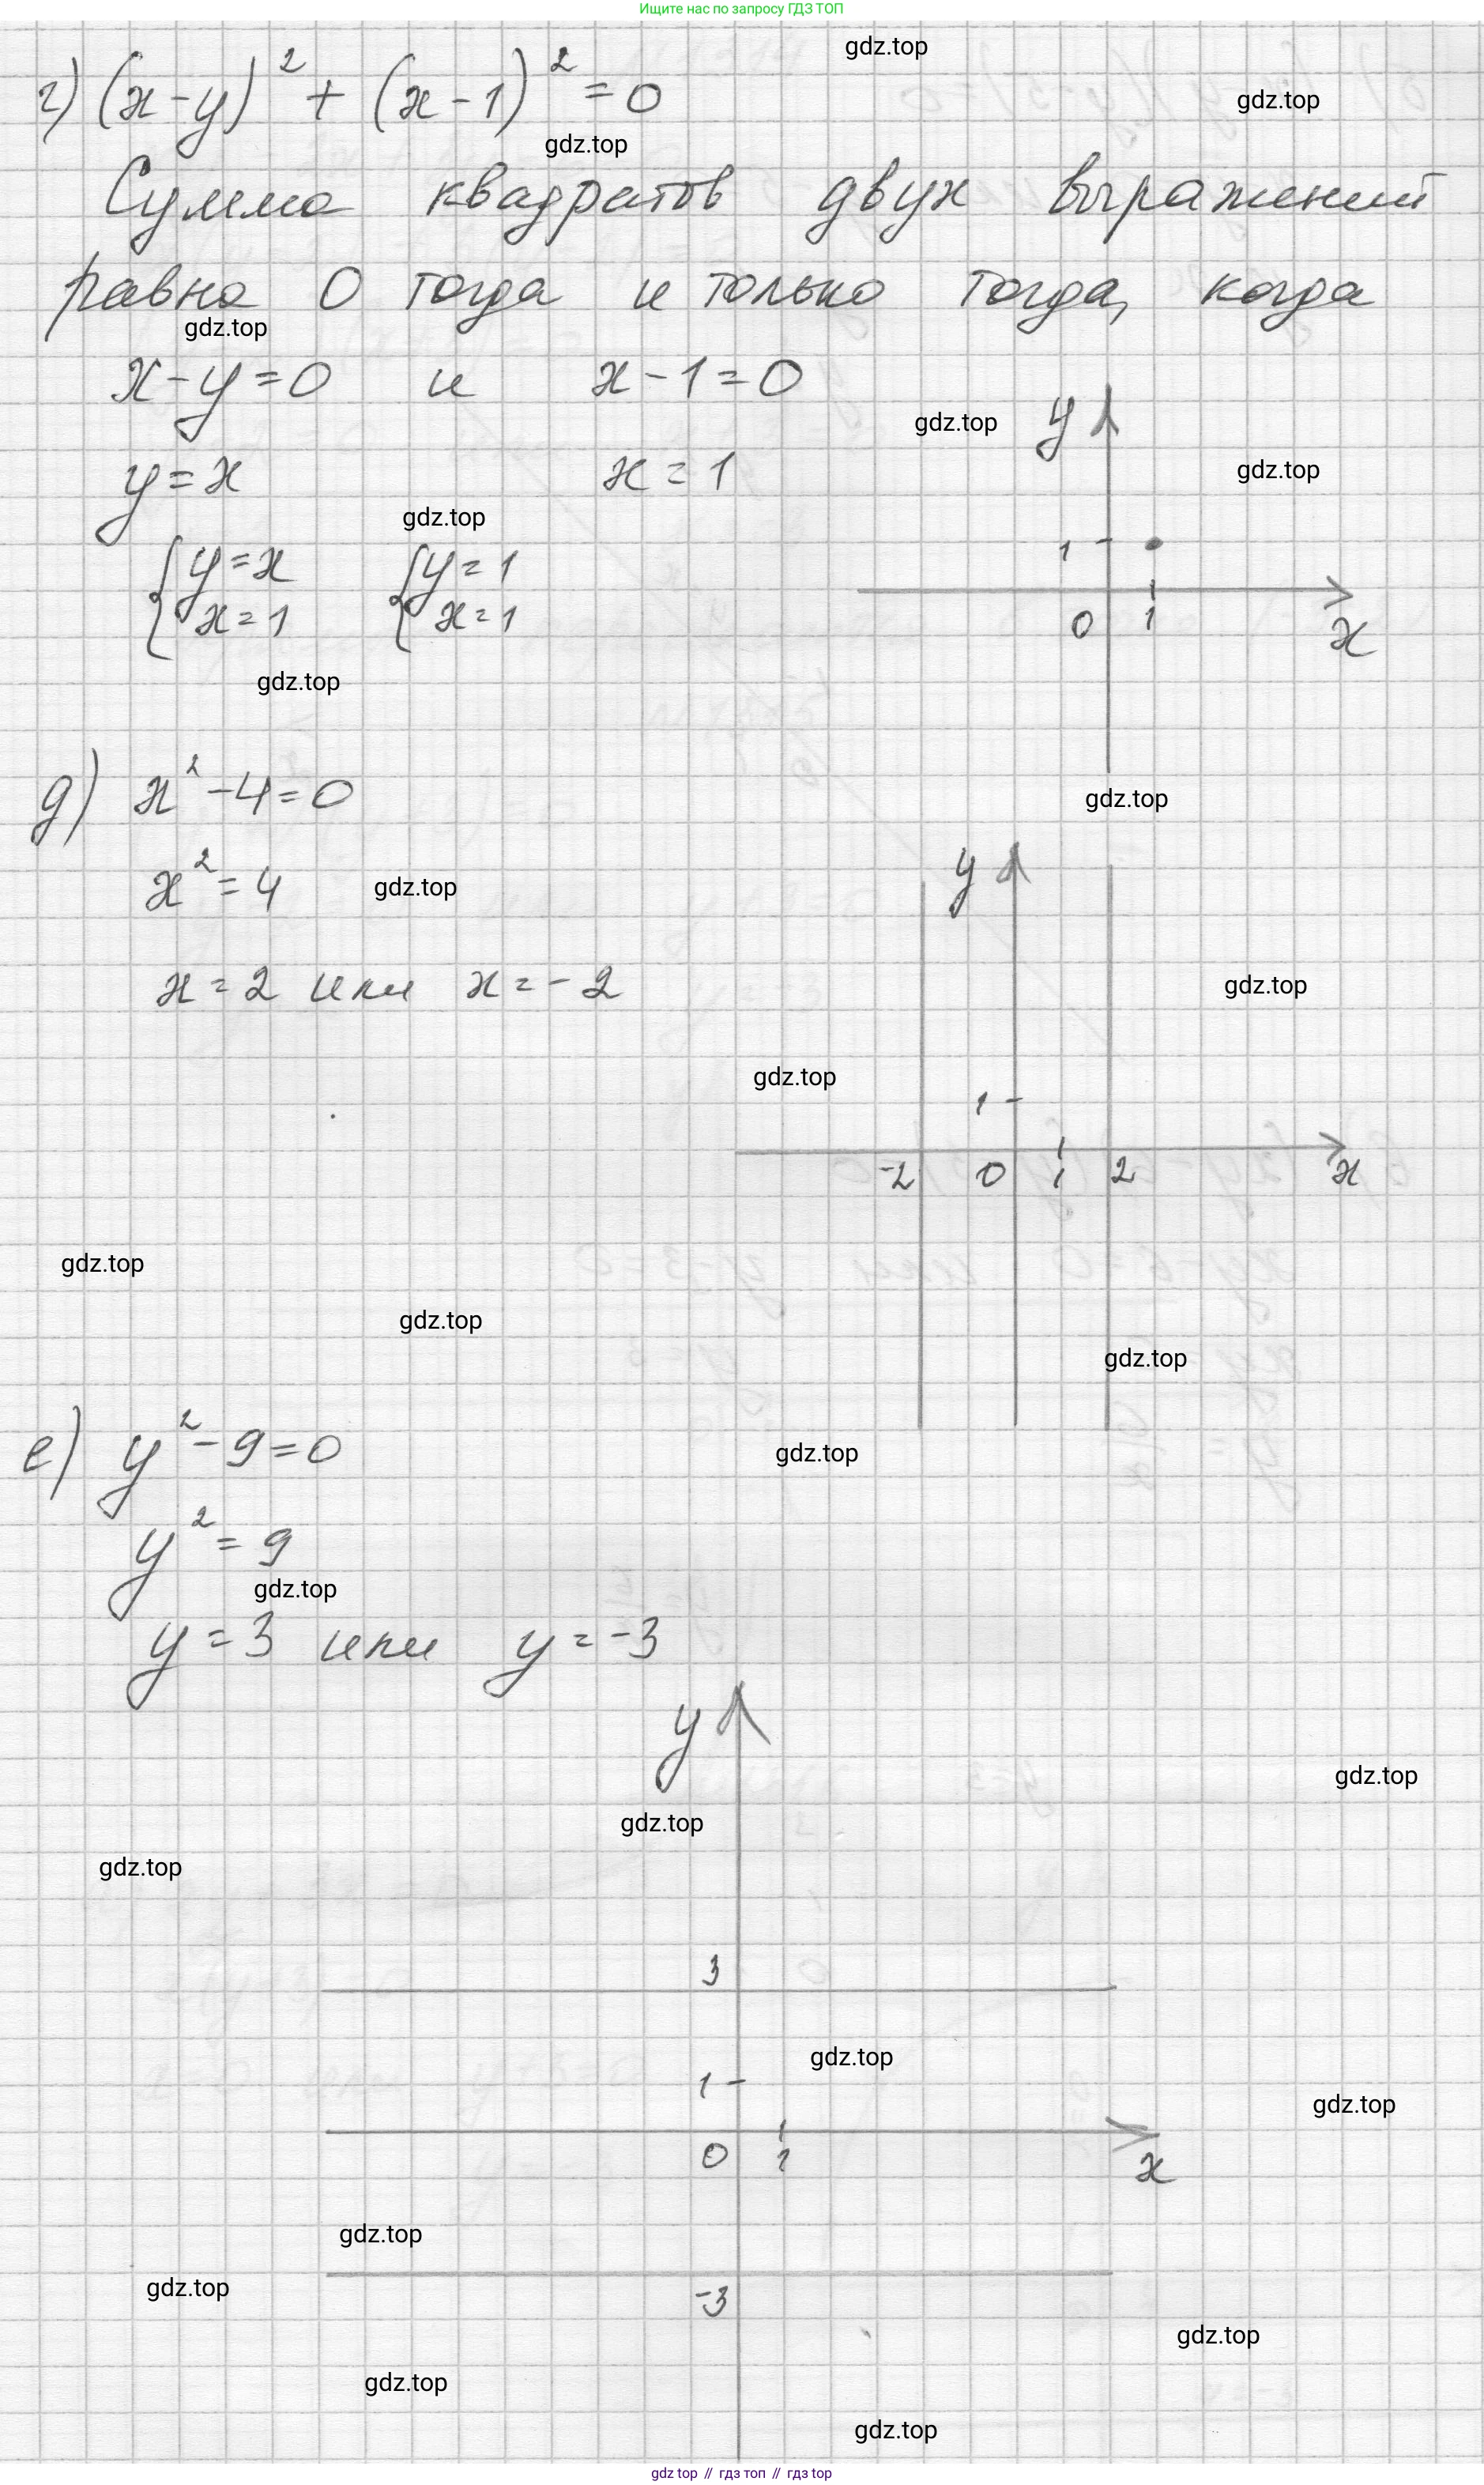 Ищите нас по запросу ГДЗ ТОП
gdz.top
г) (x-y)² + (x-1)² = 0
gdz.top
gdz.top
Сумма квадратов двух выражений
равна 0 тогда и только тогда, когда
gdz.top
x-y=0 и x-1=0
gdz.top
y
y=x x=1
gdz.top
gdz.top
{y=x {y=1
x=1 x=1
1
0 1 x
gdz.top
д) x²-4=0
gdz.top
x²=4
gdz.top
y
x=2 или x=-2
gdz.top
gdz.top
1
-2 0 1 2 x
gdz.top
gdz.top
gdz.top
е) y²-9=0
gdz.top
y²=9
gdz.top
y=3 или y=-3
y
gdz.top
gdz.top
gdz.top
3
gdz.top
1
gdz.top
0 1 x
gdz.top
gdz.top
-3
gdz.top
gdz.top
gdz.top
gdz top // гдз топ // гдз top